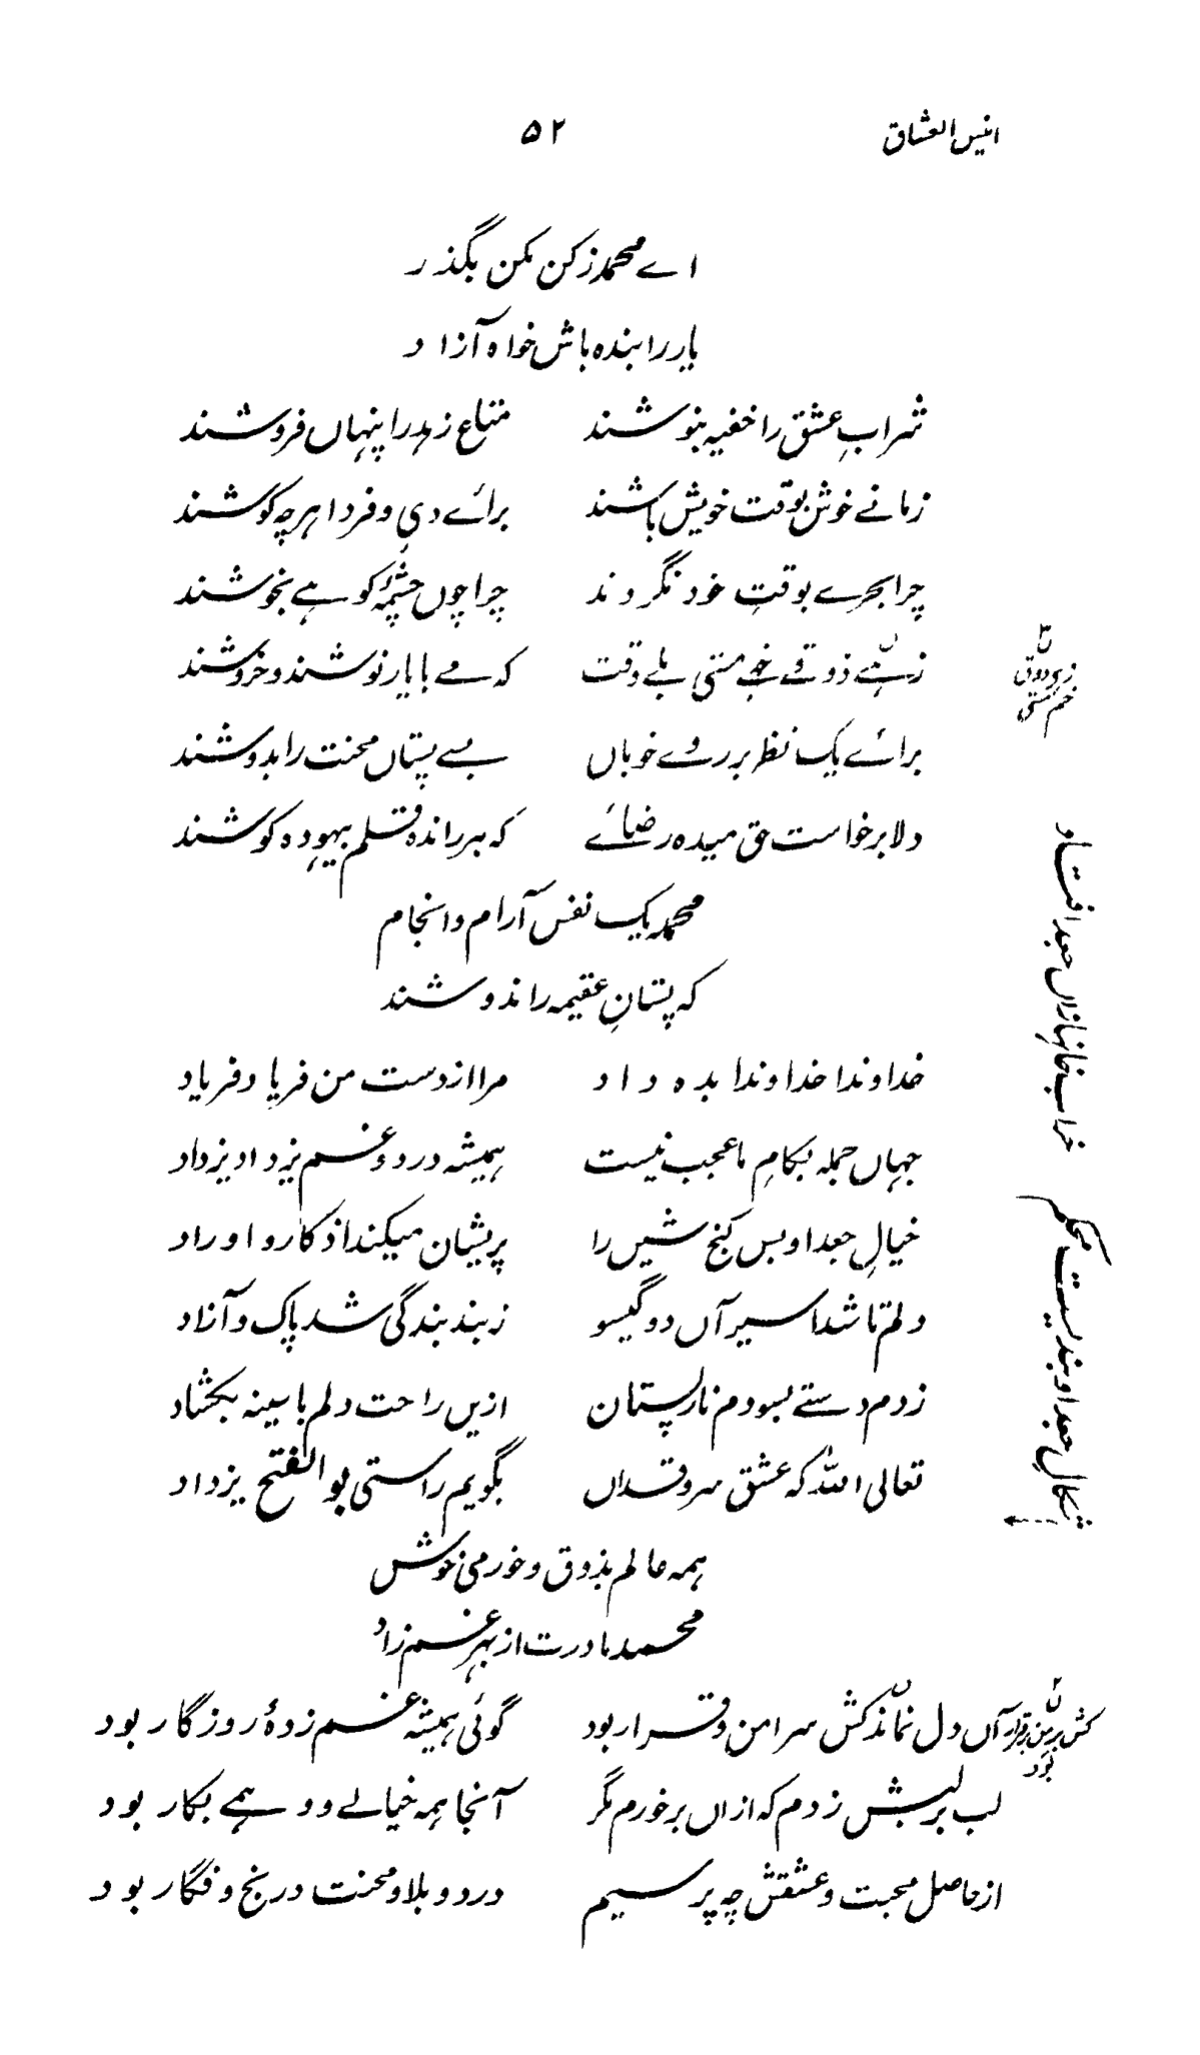 انیس العشاق ۵۲
اے محمد ز کن مکن بگذر
یار را بنده باش خواه آزاد
شرابِ عشق را خفیه بنوشند متاع زهد را پنہاں فروشند
زمانے خوش بوقت خویش باشند برائے دی و فردا هرچه کوشند
چرا بحرے بوقتِ خود نگروند چرا چوں چشمۂ کوہے بخوشند
زہے ذوقے خہے مستی بلے وقت که مے با یار نوشند و خروشند
زہی ذوق
خم مستی
برائے یک نظر بر روے خوباں بسے پستاں محنت را بدوشند
دلا برخواست حق میده رضائے که بر رانده قلم بیہوده کوشند
محمد یک نفس آرام و انجام
که پستانِ عقیمه را ندوشند
خداوندا خداوندا بده داد مرا از دست من فریاد فریاد
جہاں جمله بکامِ ما عجب نیست ہمیشه درد و غم یزداد یزداد
خیالِ جعد او بس کنج شیں را پریشان میکند اذکار و اوراد
دلم تا شد اسیر آں دو گیسو ز بند بندگی شد پاک و آزاد
زدم دستے بسودم نار پستان ازیں راحت دلم با سینه بکشاد
تعالی اللہ که عشق سرو قداں بگویم راستی بو الفتح یزداد
ہمه عالم بذوق و خورمی خوش
محمد مادرت از بہر غم زاد
آں دل نماند کش سر امن و قرار بود گوئی ہمیشه غم زدۂ روزگار بود
لب بر لبش زدم که ازاں برخورم مگر آنجا ہمه خیالے و وہمے بکار بود
از حاصل محبت و عشقش چه پرسیم درد و بلا و محنت و رنج و فگار بود
شکالِ جعد او بندیست محکم خراب خانہا زاں جعد افتاد